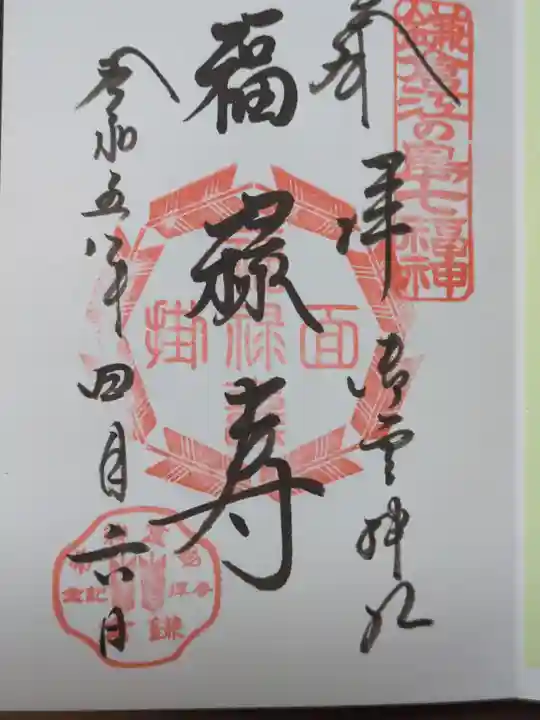 鎌倉江の島七福神
参拝 御霊神社
福禄寿
面掛
福禄寿
令和五年四月六日